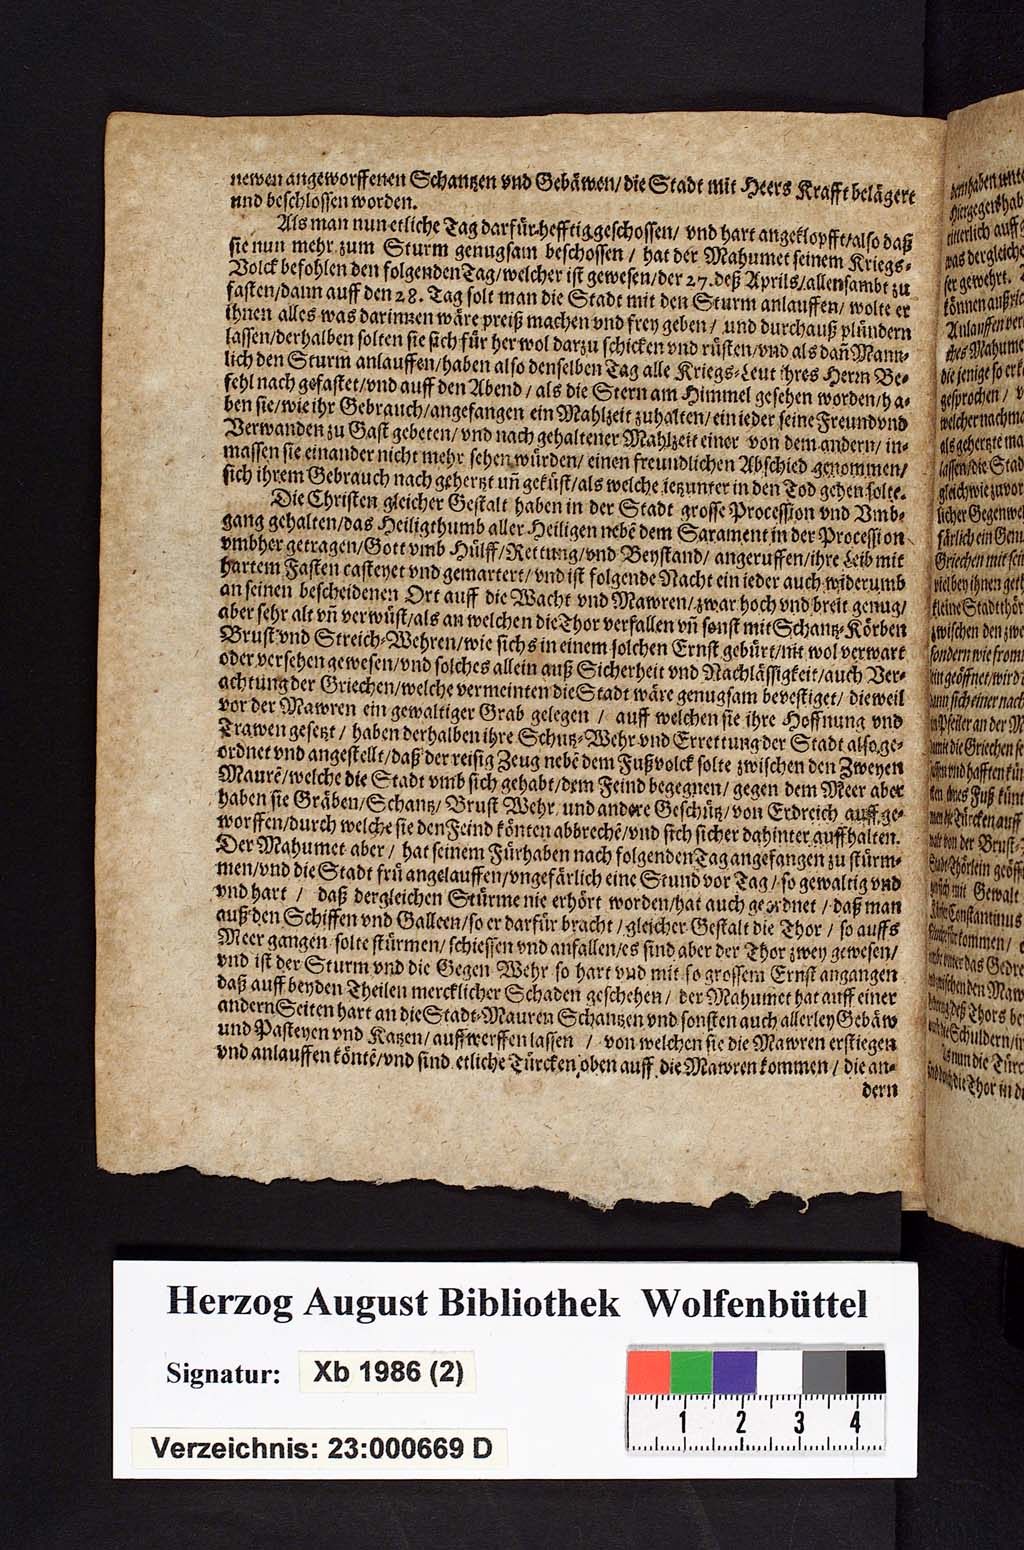 newen angeworffenen Schantzen vnd Gebäwen/ die Stadt mit Heers Krafft belägert
und beschlossen worden.
Als man nun etliche Tag darfür hefftig geschossen/ vnd hart angeklopfft/ also daß
sie nun mehr zum Sturm genugsam beschossen/ hat der Mahumet seinem Kriegs-
Volck befohlen den folgenden Tag/ welcher ist gewesen/ der 27. deß Aprils/ allensambt zu
fasten/ dann auff den 28. Tag solt man die Stadt mit den Sturm anlauffen/ wolte er
ihnen alles was darinnen wäre preiß machen vnd frey geben/ und durchauß plündern
lassen/ derhalben solten sie sich für her wol darzu schicken vnd rüsten/ vnd als dañ Mann-
lich den Sturm anlauffen/ haben also denselben Tag alle Kriegs-Leut ihres Herrn Be-
fehl nach gefastet/ vnd auff den Abend/ als die Stern am Himmel gesehen worden/ ha-
ben sie/ wie ihr Gebrauch/ angefangen ein Mahlzeit zuhalten/ ein ieder seine Freund vnd
Verwanden zu Gast gebeten/ vnd nach gehaltener Mahlzeit einer von dem andern/ in-
massen sie einander nicht mehr sehen würden/ einen freundlichen Abschied genommen/
sich ihrem Gebrauch nach gehertzt uñ geküst/ als welche ietzunter in den Tod gehen solte.
Die Christen gleicher Gestalt haben in der Stadt grosse Procession vnd Vmb-
gang gehalten/ das Heiligthumb aller Heiligen nebē dem Sarament in der Procession
vmbher getragen/ Gott vmb Hülff/ Rettung/ vnd Beystand/ angeruffen/ ihre Leib mit
hartem Fasten casteyet vnd gemartert/ vnd ist folgende Nacht ein ieder auch widerumb
an seinen bescheidenen Ort auff die Wacht vnd Mawren/ zwar hoch vnd breit genug/
aber sehr alt vñ verwüst/ als an welchen die Thor verfallen vñ sonst mit Schantz-Körben
Brust vnd Streich-Wehren/ wie sichs in einem solchen Ernst gebürt/ nit wol verwart
oder versehen gewesen/ vnd solches allein auß Sicherheit vnd Nachlässigkeit/ auch Ver-
achtung der Griechen/ welche vermeinten die Stadt wäre genugsam bevestiget/ dieweil
vor der Mawren ein gewaltiger Grab gelegen/ auff welchen sie ihre Hoffnung vnd
Trawen gesetzt/ haben derhalben ihre Schutz-Wehr vnd Errettung der Stadt also ge-
ordnet vnd angestellt/ daß der reisig Zeug nebē dem Fußvolck solte zwischen den Zweyen
Maurē/ welche die Stadt vmb sich gehabt/ dem Feind begegnen/ gegen dem Meer aber
haben sie Gräben/ Schantz/ Brust Wehr und andere Geschütz/ von Erdreich auff ge-
worffen/ durch welche sie den Feind könten abbrechē/ vnd sich sicher dahinter auffhalten.
Der Mahumet aber/ hat seinem Fürhaben nach folgenden Tag angefangen zu stürm-
men/ vnd die Stadt frü angelauffen/ vngefärlich eine Stund vor Tag/ so gewaltig vnd
vnd hart/ daß dergleichen Stürme nie erhört worden/ hat auch geordnet/ daß man
auß den Schiffen vnd Galleen/ so er darfür bracht/ gleicher Gestalt die Thor/ so auffs
Meer gangen solte stürmen/ schiessen vnd anfallen/ es sind aber der Thor zwey gewesen/
vnd ist der Sturm vnd die Gegen Wehr so hart vnd mit so grossem Ernst angangen
daß auff beyden Theilen mercklicher Schaden geschehen/ der Mahumet hat auff einer
andern Seiten hart an die Stadt-Mauren Schantzen vnd sonsten auch allerley Gebäw
und Pasteyen vnd Katzen/ auffwerffen lassen/ von welchen sie die Mawren ersteigen
vnd anlauffen köntē/ vnd sind etliche Türcken oben auff die Mawren kommen/ die an-
dern
Herzog August Bibliothek Wolfenbüttel
Signatur: Xb 1986 (2)
1 2 3 4
Verzeichnis: 23:000669 D